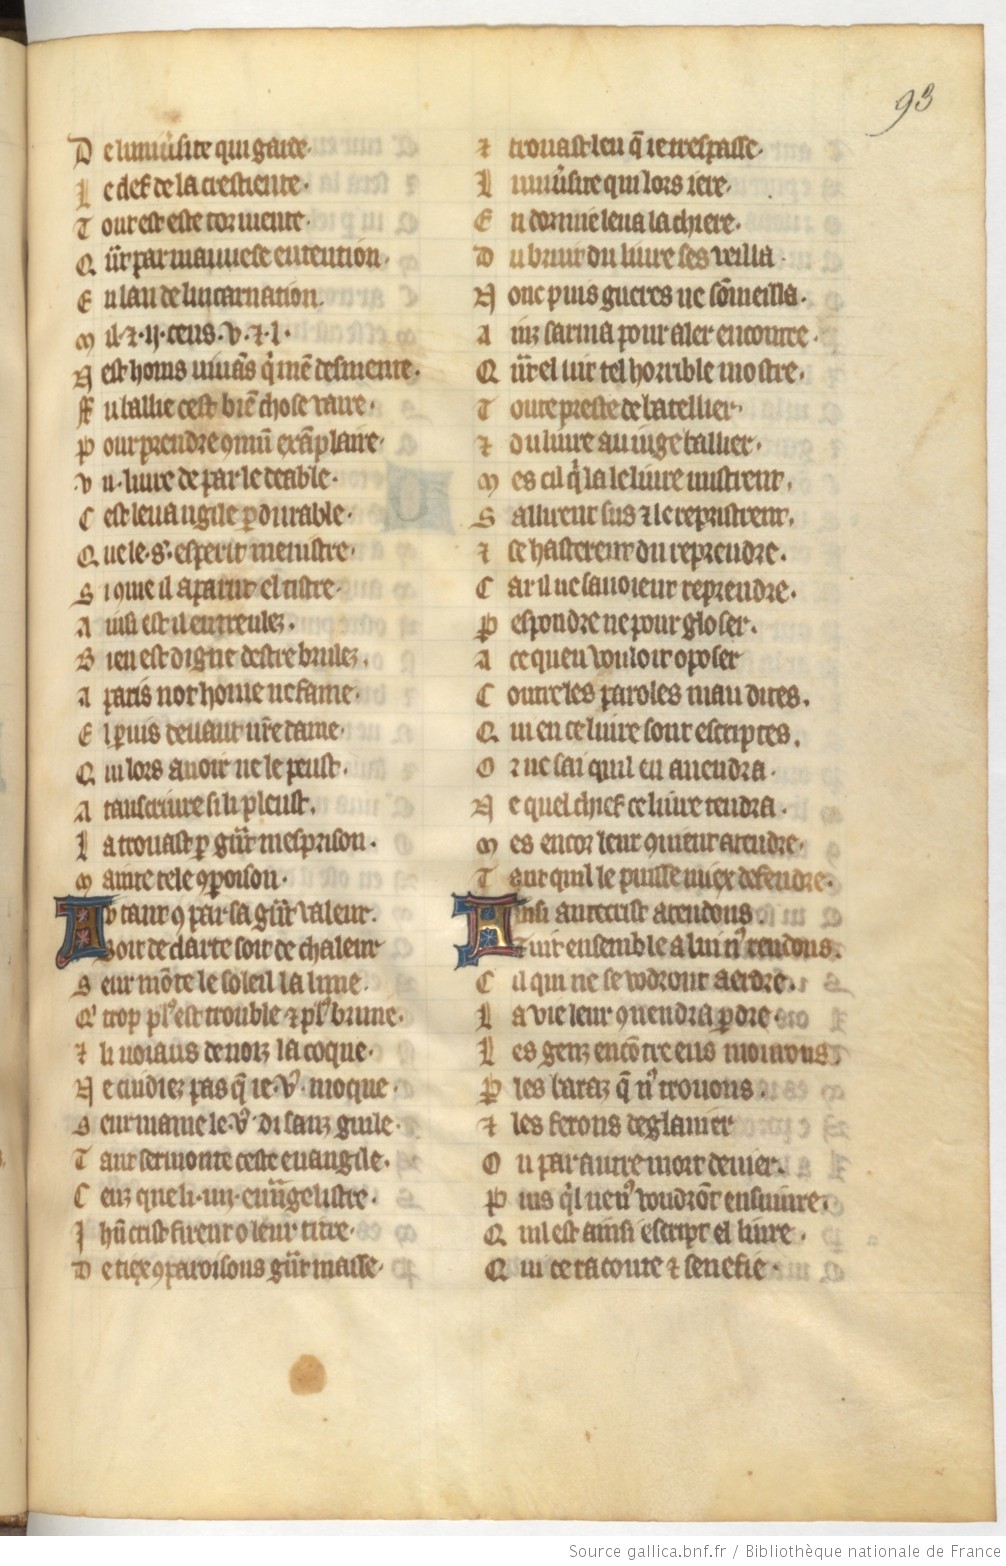 93
De luniũsite qui garde·
Le clef de la crestiente·
Tout est este tormente·
Qũr par mauuese entention·
En lan de lincarnation.
Mil·⁊·ij·cens·v·⁊·l·
Nest homs uiuãs q̃ mẽ desmente·
Fu baillie cest biẽ chose uaire·
Pour prendre ꝯmũ exãplaire·
Vn·liure de par le deable·
Cest leuangile ꝑdurable·
Que le·s·esperit menistre·
Si ꝯme il aparut el tistre·
Ainsi est il entreulez·
Bien est digne destre brulez.
A paris not home ne fame·
El ꝑuis deuant nr̃e dame·
Qui lors auoir ne le peust·
A tanscriure sili pleust·
La trouast ꝑ gr̃t mesprison·
Mainte tele ꝯꝑoison·
Autant ꝯ par sa gr̃t ualeur·
Soit de clarte soit de chaleur
Seurmõte le soleil la lune·
Q' trop pl' est trouble ⁊ pl' brune·
⁊ li noiaus de noiz la coque·
Ne cuidiez pas q̃ ie·v'·moque·
Seur mame le·v'·di sanz guile·
Tant sermonte ceste euangile·
Ceuz que li·iiij·euuãgelistre·
Jhũcrist firent o leur titre·
De tiex ꝯparoisons gr̃t masse·
⁊ trouast leu q̃ ie trespasse·
Luniũsite qui lors iere·
Endormie leua la chiere·
Du bruit du liure ses ueilla·
Nonc puis gueres ne sõmeilla·
Ainz sarma pour aler encontre·
Qũr el uit tel horrible mostre·
Toute preste de batellier·
⁊ du liure au iuge ballier·
Mes cil q̃ la le liure mistrent·
Saillirent sus ⁊ le repristrent·
⁊ se hasterent du reprendre·
Car il ne sauoient reprendre·
Respondre ne pour gloser·
A ce quen uouloit oposer
Contre les paroles maudites.
Qui en ce liure sont escriptes.
Or ne sai quil en auendra·
Ne quel chief ce liure tendra·
Mes encor leur ꝯuient atendre·
Tant quil le puisse miex defendre·
Ainsi antecrist atendons·
Tuit ensemble a lui n' rendons·
Cil qui ne se uodront aerdre·
La uie leur ꝯuendra ꝑdre·
Les genz encõtre eus mouurons·
P les baraz q̃ n' trouons·
⁊ les ferons deglauier
Ou par autre mort deuier·
Puis q̃l ne n' uoudrõt ensuiure·
Quil est ainsi escript el liure·
Qui ce raconte ⁊ senefie·
Source gallica.bnf.fr / Bibliothèque nationale de France